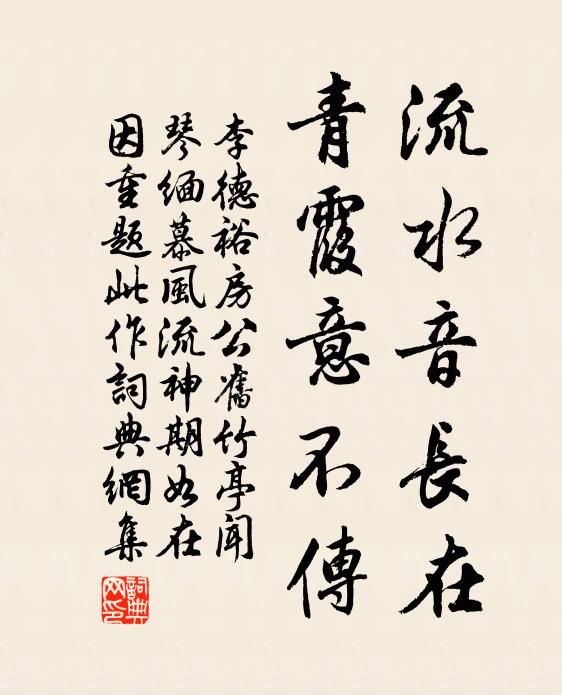 流水音長在
青霞意不傳
李德裕房公舊竹亭聞
琴緬慕風流神期如在
因重題此作詞典網集
詞典網印